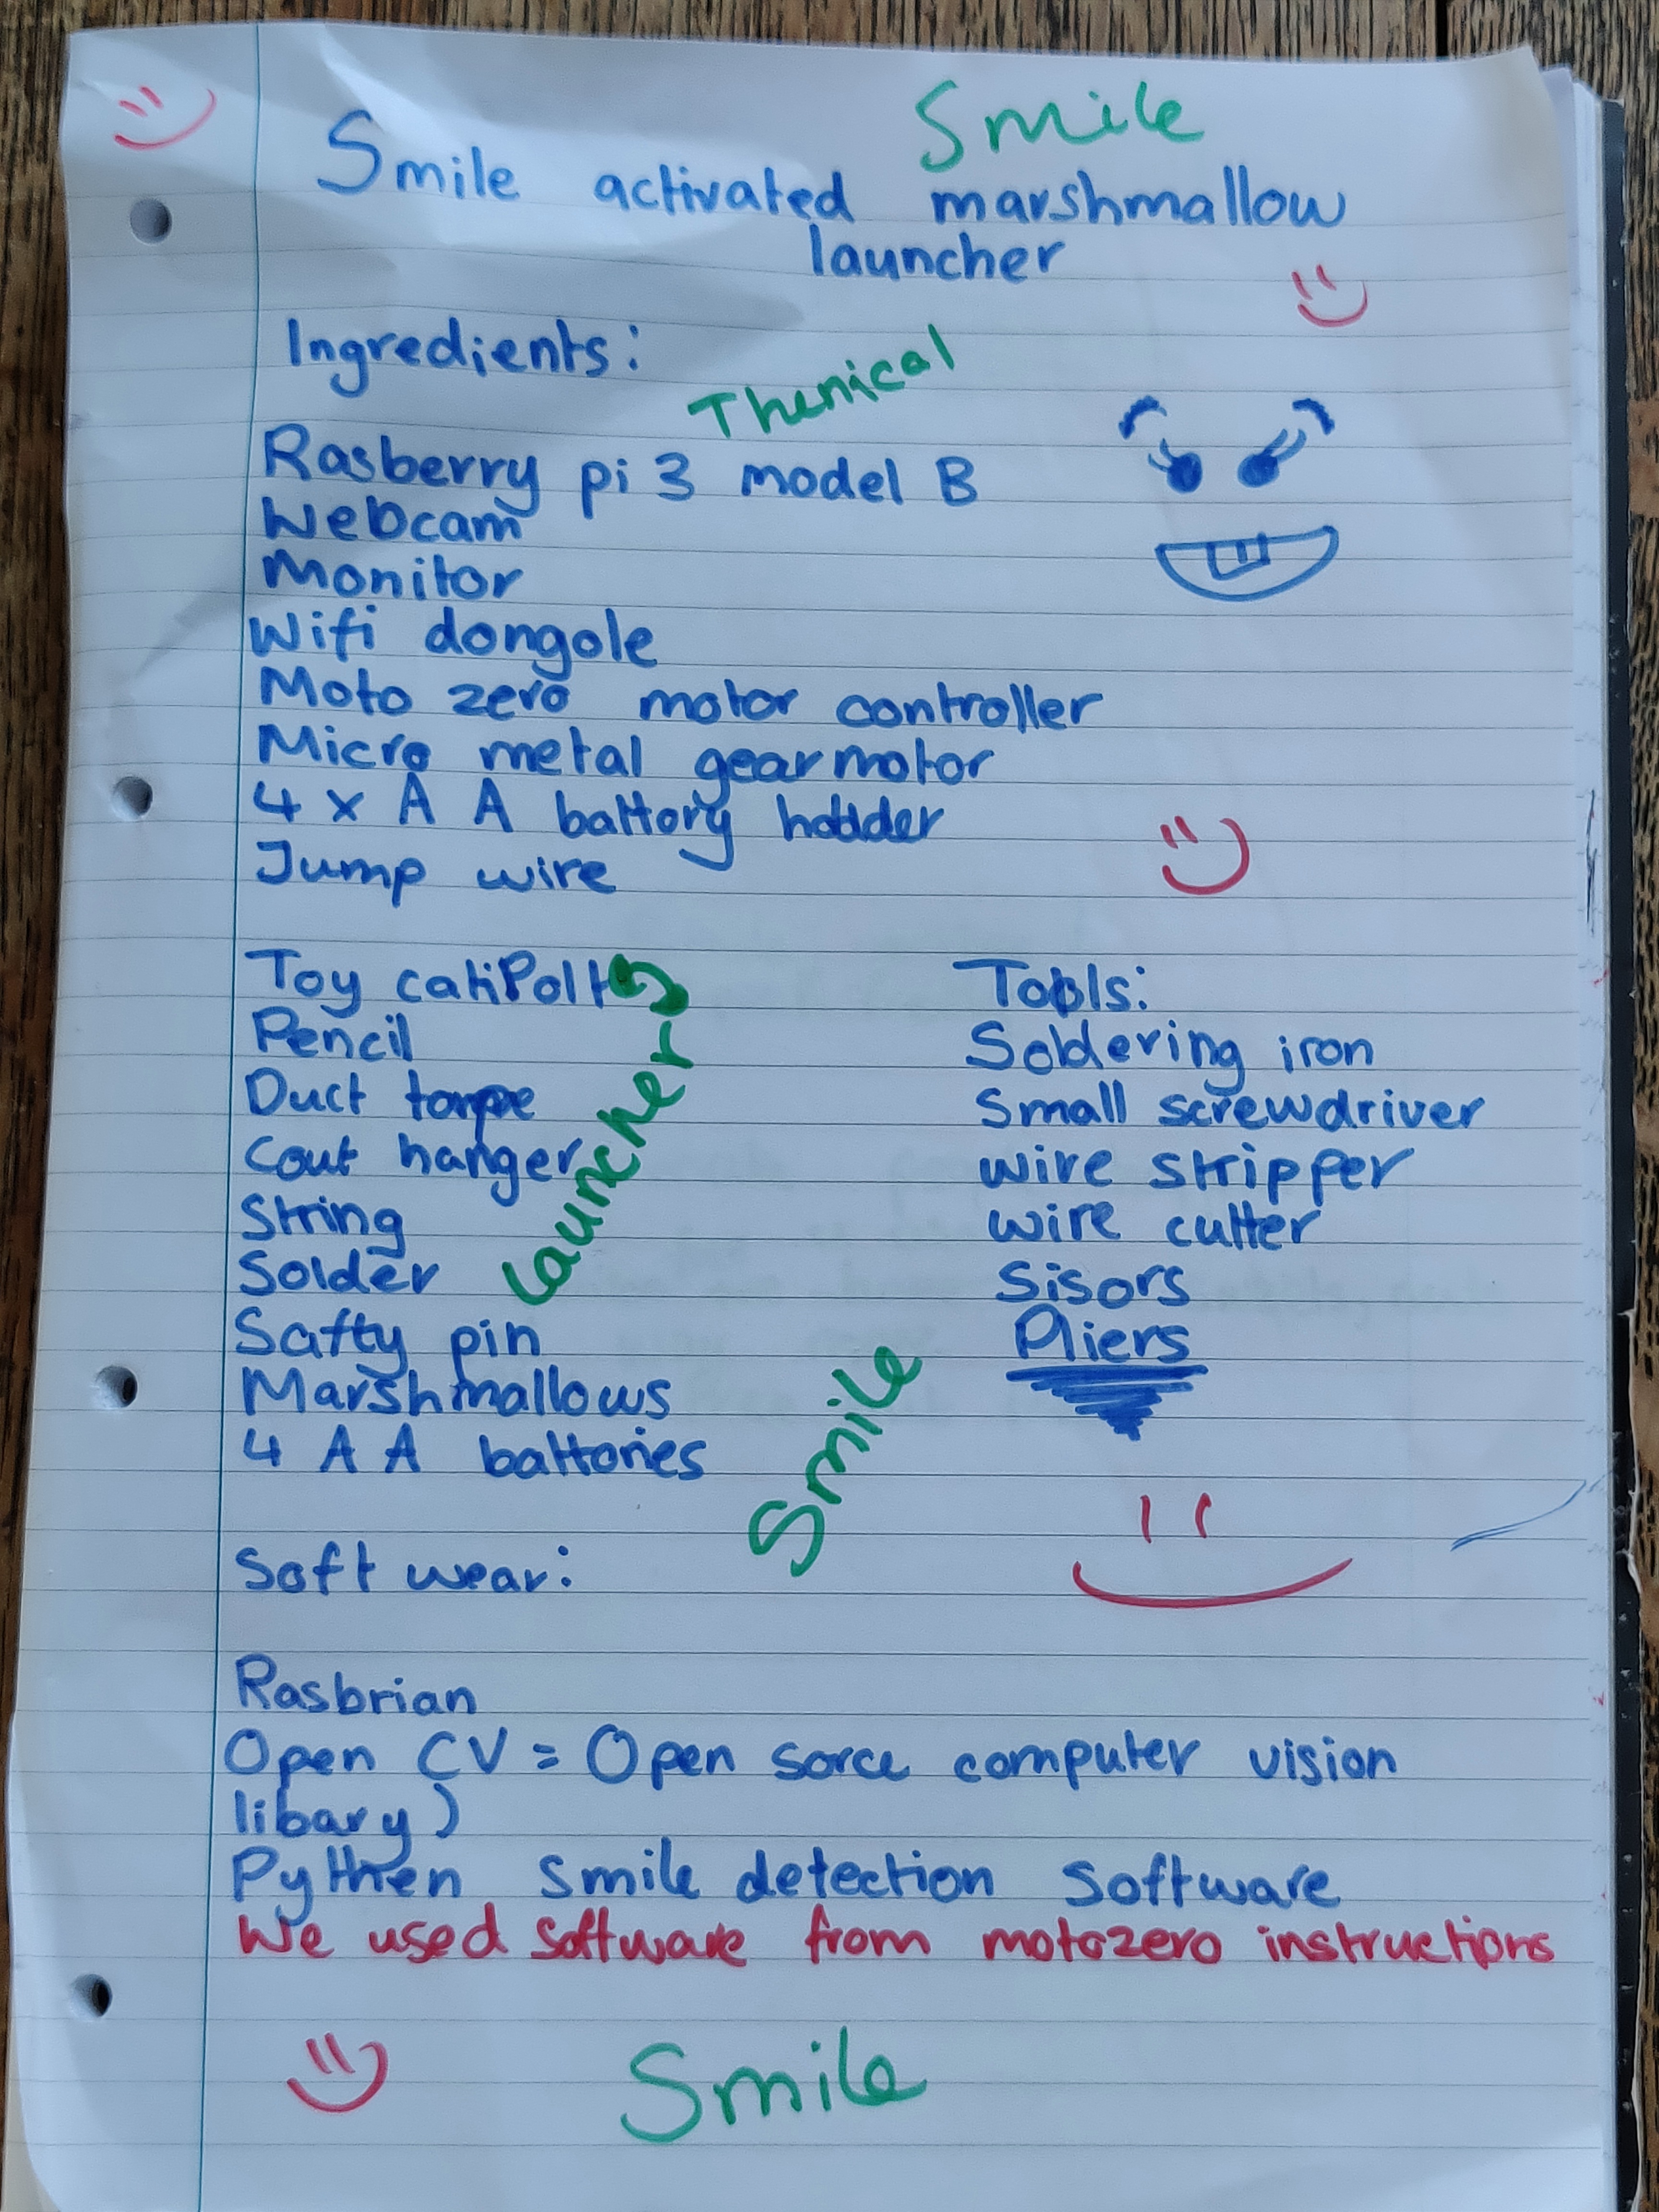 Smile
Smile activated marshmallow
launcher
Ingredients:
Thenical
Rasberry pi 3 model B
Webcam
Monitor
Wifi dongole
Moto zero motor controller
Micro metal gearmotor
4 x A A battory holder
Jump wire
Toy catipolt
Pencil
Duct tape
Cout hanger
String
Solder
Safty pin
Marshmallows
4 A A battories
Launcher
Tools:
Soldering iron
Small screwdriver
wire stripper
wire cutter
Sisors
Pliers
Smile
Soft wear:
Rasbrian
Open CV = Open sorce computer vision
libary)
Python Smile detection Software
We used software from motozero instructions
Smile